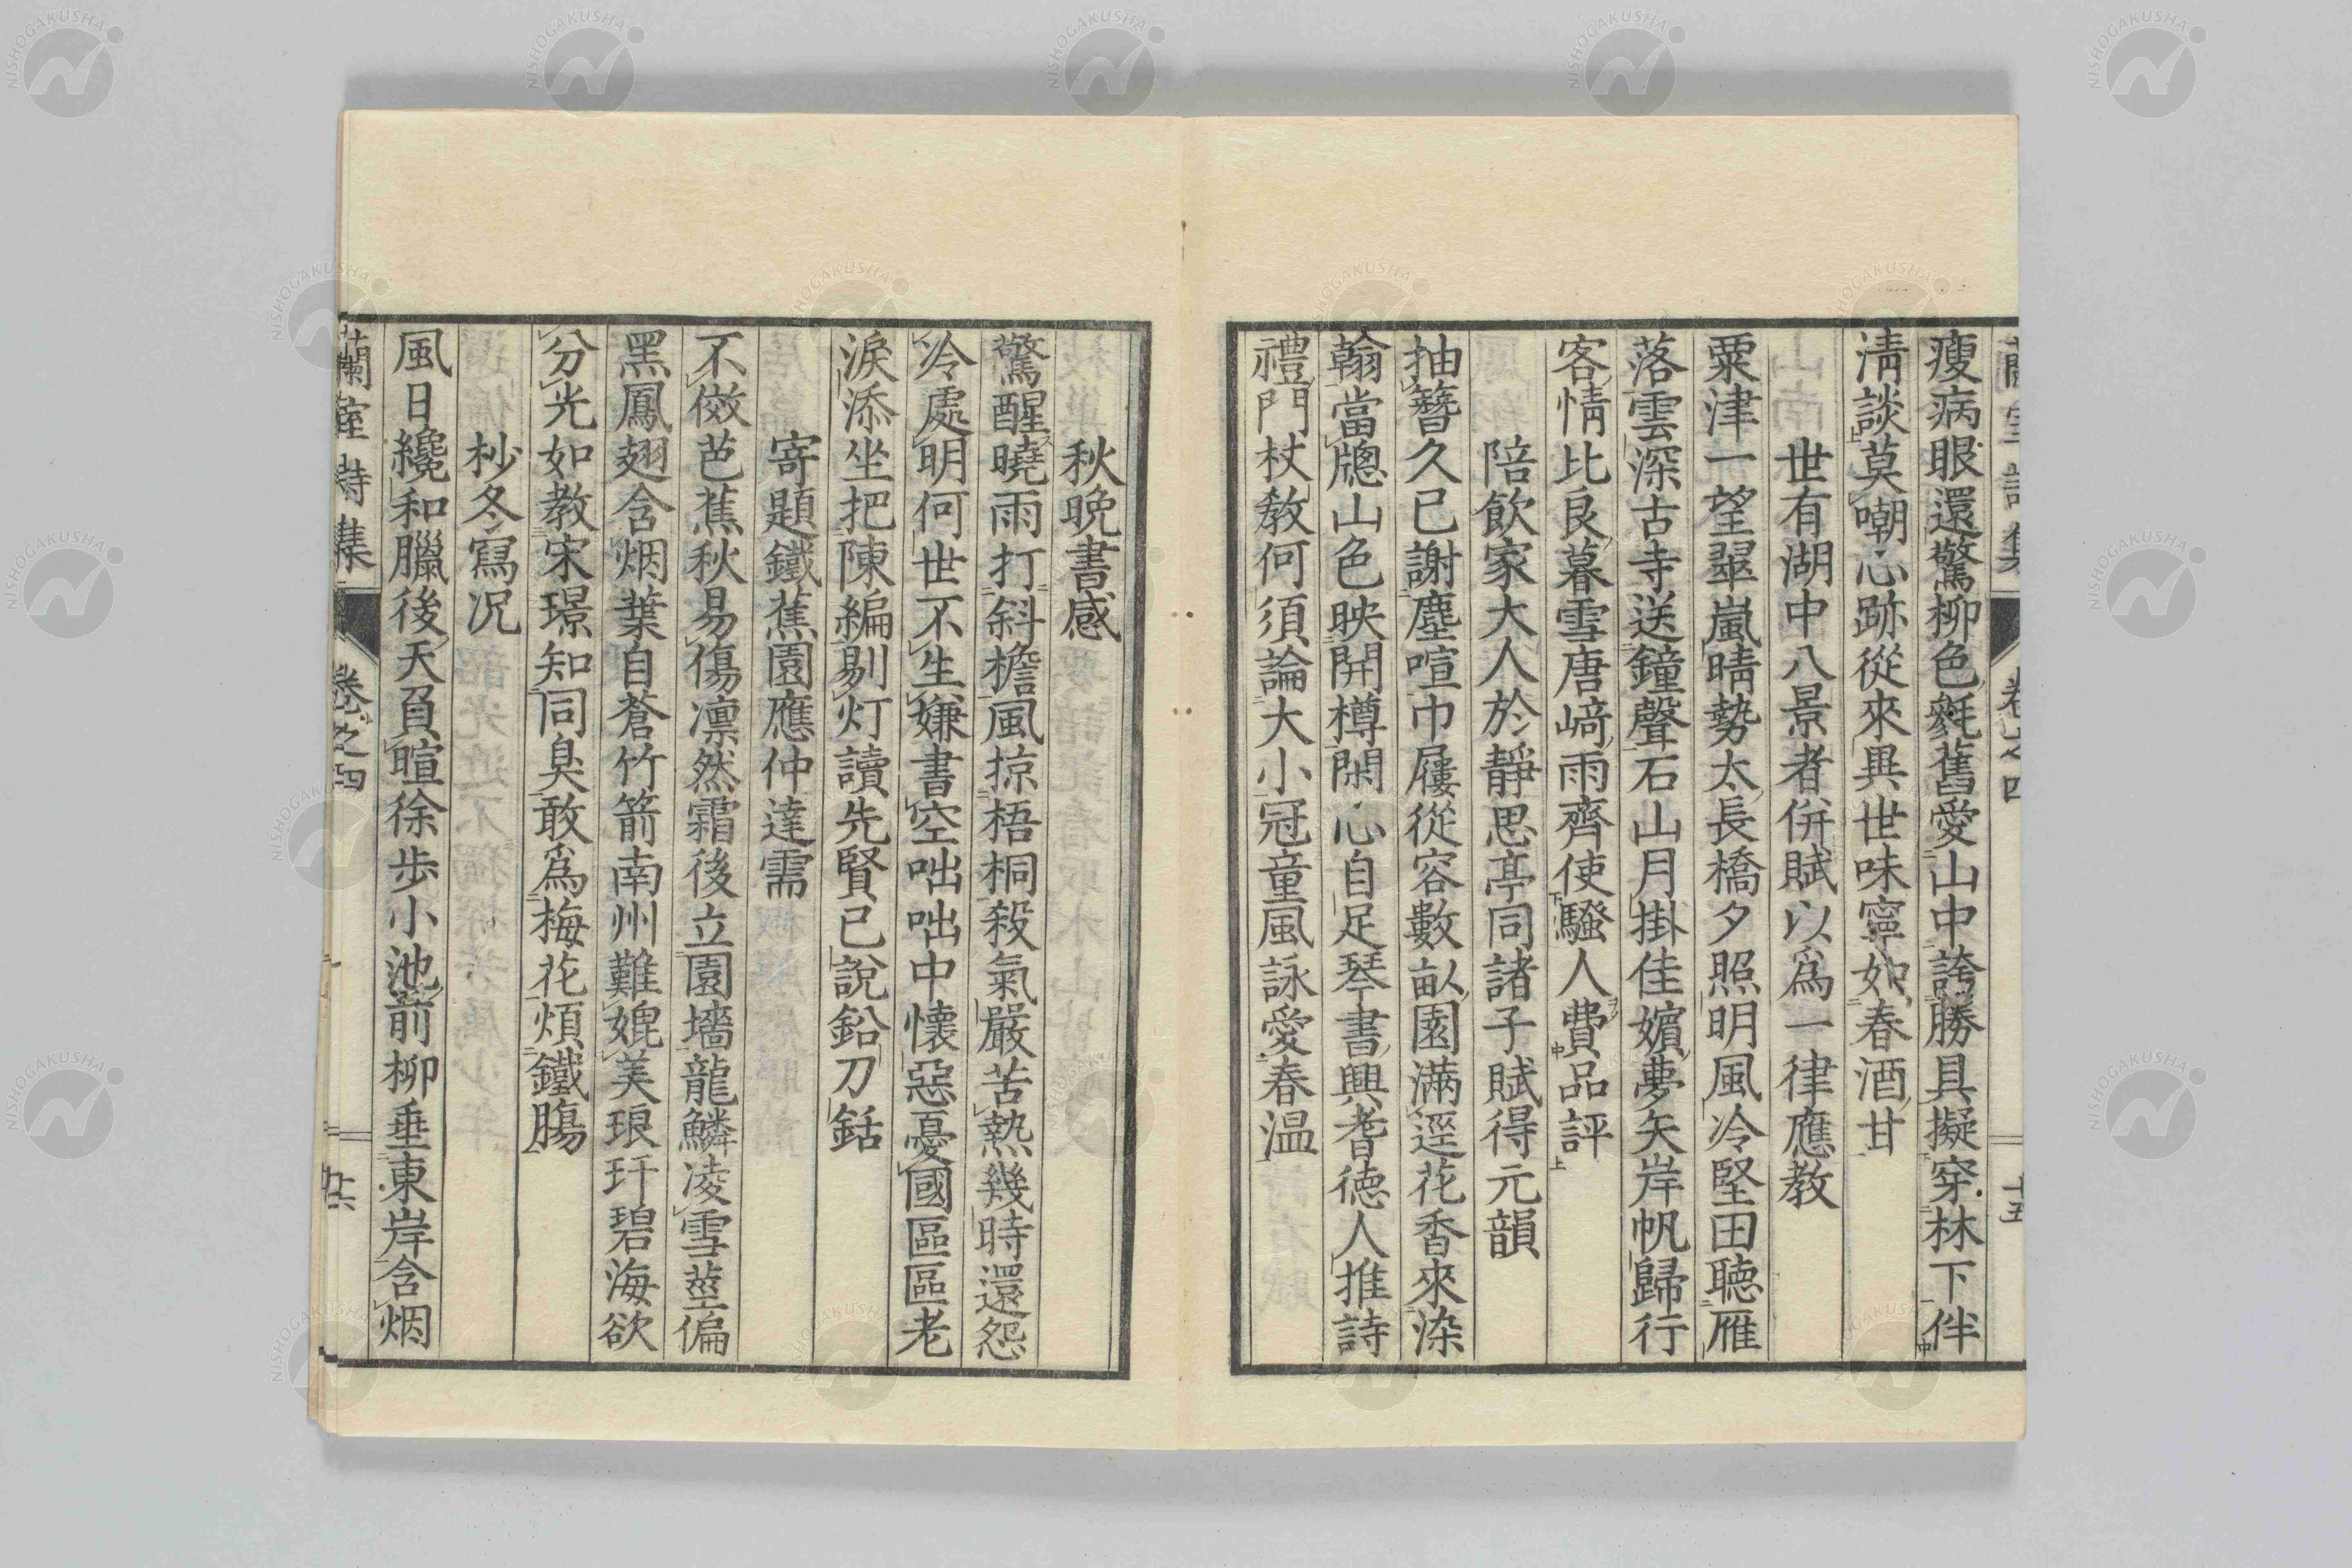 瘦病眼還驚柳色毿舊愛山中誇勝具擬穿林下伴
淸談莫嘲心跡從來異世味寧如春酒甘
世有湖中八景者併賦以爲一律應教
粟津一望翠嵐晴勢太長橋夕照明風冷堅田聴雁
落雲深古寺送鐘聲石山月掛佳嬪夢矢岸帆歸行
客情比良暮雪唐﨑雨齊使騷人費品評
陪飲家大人於靜思亭同諸子賦得元韻
抽簪久已謝塵喧巾屨從容數畝園滿逕花香來染
翰當牕山色映開樽閑心自足琴書興耆徳人推詩
禮門杖敎何須論大小冠童風詠愛春温
蘭室詩集 卷之四 十五
秋晩書感
驚醒曉雨打斜檐風掠梧桐殺氣嚴苦熱幾時還怨
冷處明何世不生嫌書空咄咄中懷惡憂國區區老
淚添坐把陳編剔灯讀先賢已說鉛刀銛
寄題鐵蕉園應仲達需
不傚芭蕉秋易傷凛然霜後立園墻龍鱗凌雪莖偏
黑鳳翅含烟葉自蒼竹箭南州難媲美琅玕碧海欲
分光如教宋璟知同臭敢爲梅花煩鐵腸
杪冬寫况
風日纔和臘後天負暄徐歩小池前柳垂東岸含烟
蘭室詩集 卷之四 十六